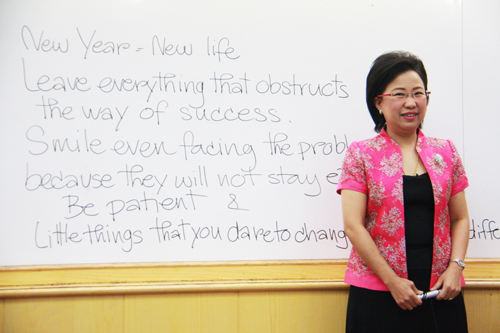 New Year - New life
Leave everything that obstructs
the way of success.
Smile even facing the
because they will not stay
Be patient &
Little things that you dare to